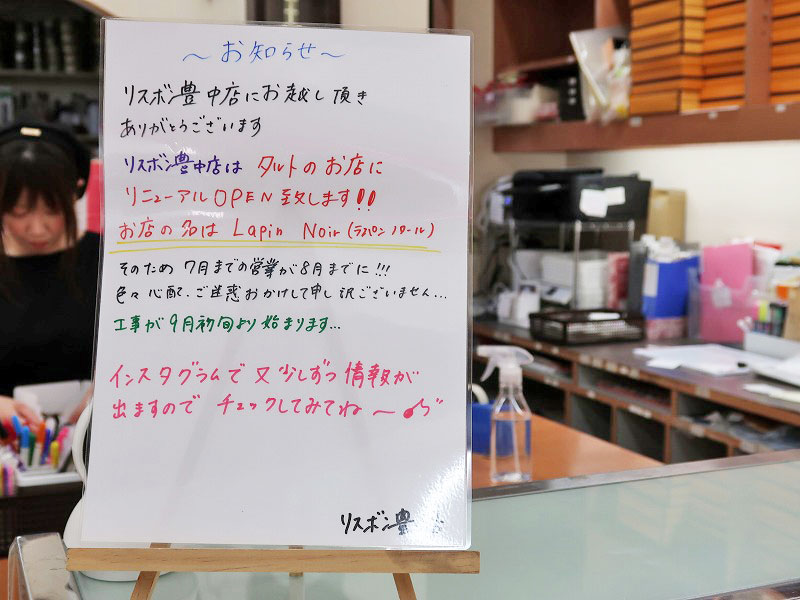 ～お知らせ～
リスボン豊中店にお越し頂き
ありがとうございます
リスボン豊中店は タルトのお店に
リニューアルOPEN致します!!
お店の名は Lapin Noir (ラパン ノワール)
そのため 7月までの営業が8月までに!!!
色々心配、ご迷惑おかけして申し訳ございません…
工事が9月初旬より始まります…
インスタグラムで又少しずつ情報が
出ますので チェックしてみてね～
リスボン豊